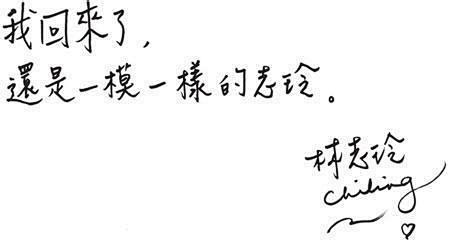 我回來了,
還是一模一樣的志玲。
林志玲
Chiling